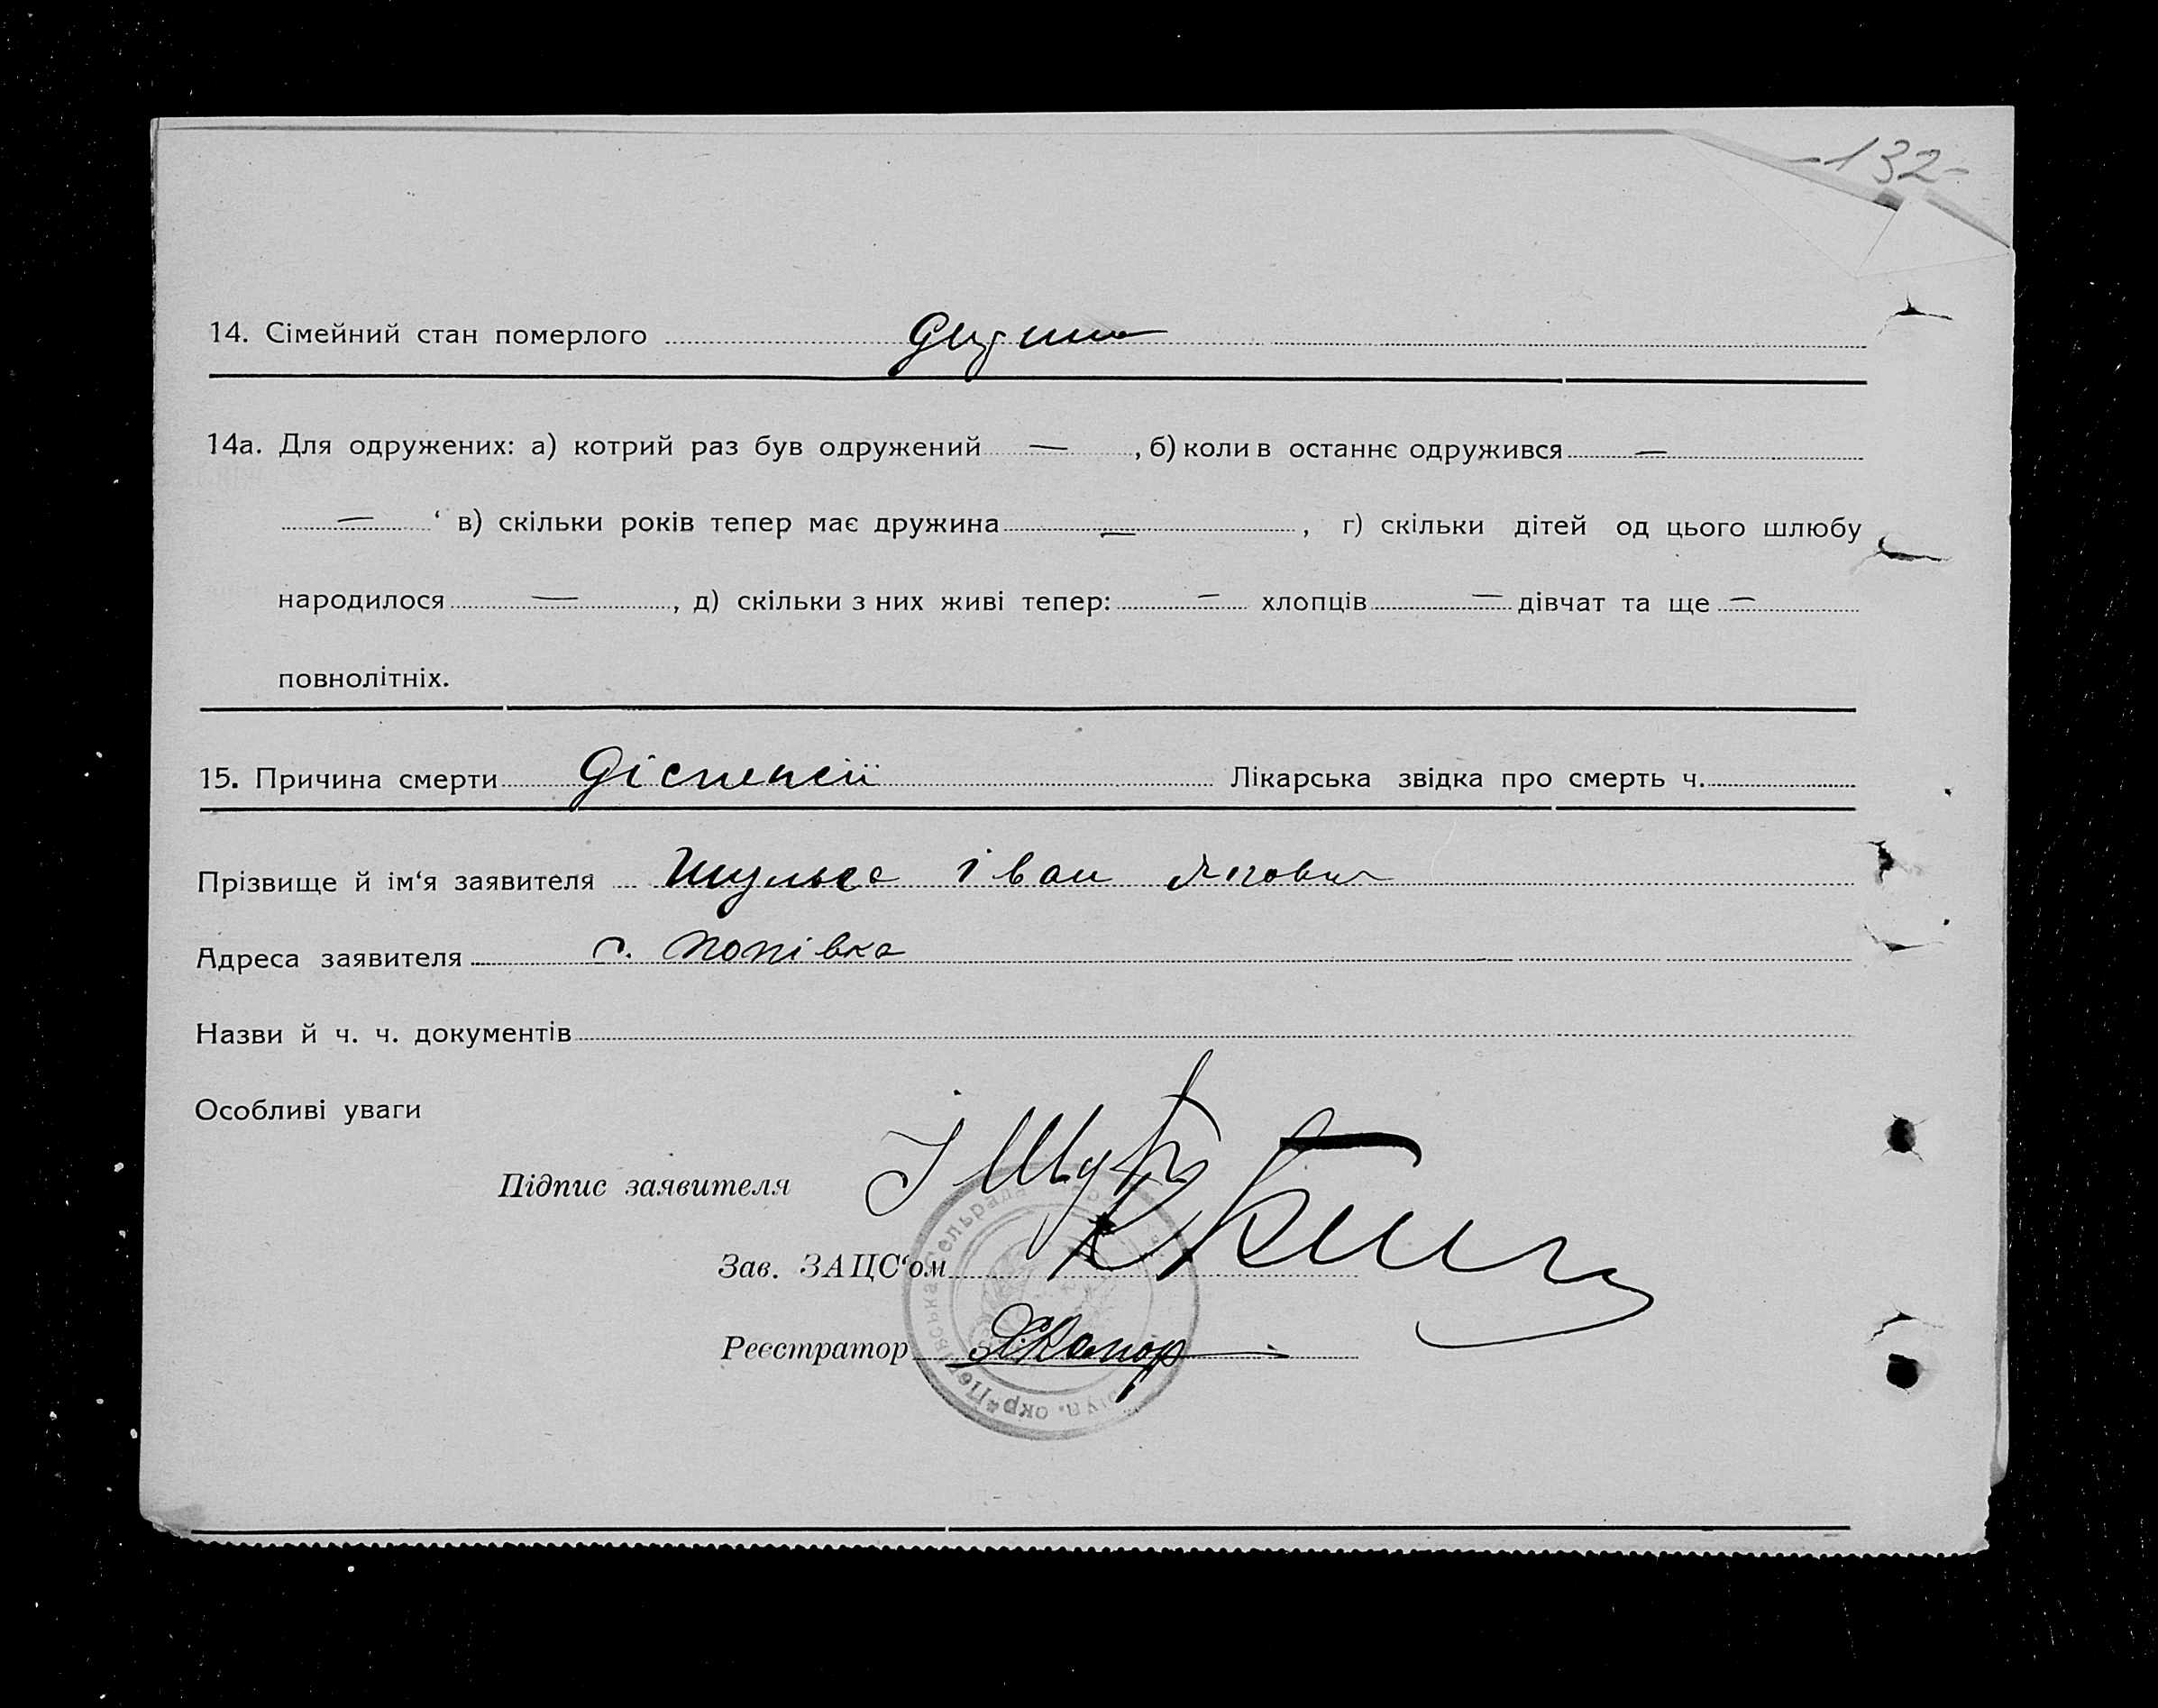 -132-
14. Сімейний стан померлого
14а. Для одружених: а) котрий раз був одружений — , б) коли в останнє одружився —
— ‘ в) скільки років тепер має дружина — , г) скільки дітей од цього шлюбу
народилося — , д) скільки з них живі тепер: — хлопців — дівчат та ще —
повнолітніх.
15. Причина смерти Діспепсії Лікарська звідка про смерть ч.
Прізвище й ім‘я заявителя Шульга Іван
Адреса заявителя с. Попівка
Назви й ч. ч. документів
Особливі уваги
Підпис заявителя
Зав. ЗАЦС‘ом
Реєстратор